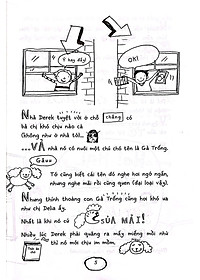 Ý hay đấy!
OK!
Nhà Derek tuyệt vời ở chỗ chẳng có
bà chị khó chịu nào cả
(Không như ở nhà tớ)...
...VÀ nhà nó có nuôi một chú chó tên là Gà Trống.
Gâuu
Tớ cũng biết cái tên đó nghe hơi ngờ ngẫn,
nhưng nghe mãi rồi cũng quen (đại loại vậy).
Nhưng thỉnh thoảng con Gà Trống cũng hơi khó ưa
như chị Delia ấy.
Nhất là khi nó cứ SỦA MÃI!
Nhiều lúc Derek phải quăng ra mấy miếng mồi nhử
thì nó mới chịu im mồm.
5